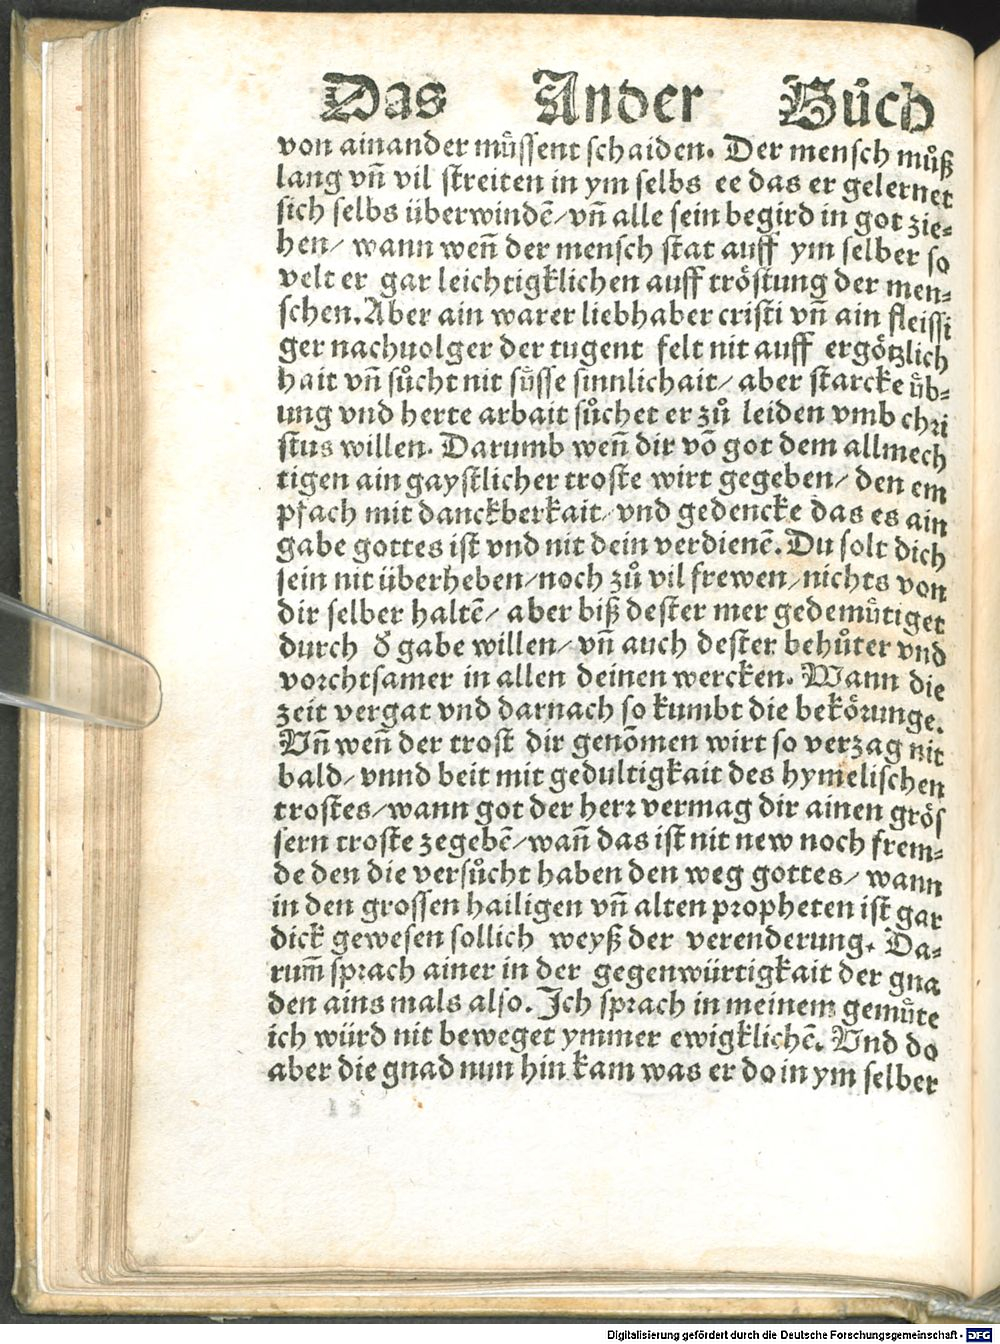 Das Ander Bůch
von ainander müssent schaiden. Der mensch můß
lang vñ vil streiten in ym selbs ee das er gelernet
sich selbs überwindẽ/vñ alle sein begird in got zie-
hen/ wann weñ der mensch stat auff ym selber so
velt er gar leichtigklichen auff tröstung der men-
schen. Aber ain warer liebhaber cristi vñ ain fleissi
ger nachuolger der tugent felt nit auff ergötzlich
hait vñ sůcht nit süsse sinnlichait/ aber starcke üb-
ung vnd herte arbait sůchet er zů leiden vmb chri
stus willen. Darumb weñ dir võ got dem allmech
tigen ain gaystlicher troste wirt gegeben/ den em
pfach mit danckberkait/ vnd gedencke das es ain
gabe gottes ist vnd nit dein verdienẽ. Du solt dich
sein nit überheben/noch zů vil frewen/nichts von
dir selber haltẽ/ aber biß dester mer gedemütiget
durch ð gabe willen/ vñ auch dester behůter vnd
vorchtsamer in allen deinen wercken. Wann die
zeit vergat vnd darnach so kumbt die bekörunge.
Vñ weñ der trost dir genõmen wirt so verzag nit
bald/ vnnd beit mit gedultigkait des hymelischen
trostes/wann got der herr vermag dir ainen grös
sern troste zegebẽ/wañ das ist nit new noch frem-
de den die versůcht haben den weg gottes/ wann
in den grossen hailigen vñ alten propheten ist gar
dick gewesen sollich weyß der verenderung. Da-
rum̃ sprach ainer in der gegenwürtigkait der gna
den ains mals also. Ich sprach in meinem gemüte
ich würd nit beweget ymmer ewigklichẽ. Vnd do
aber die gnad nun hin kam was er do in ym selber
Digitalisierung gefördert durch die Deutsche Forschungsgemeinschaft - DFG